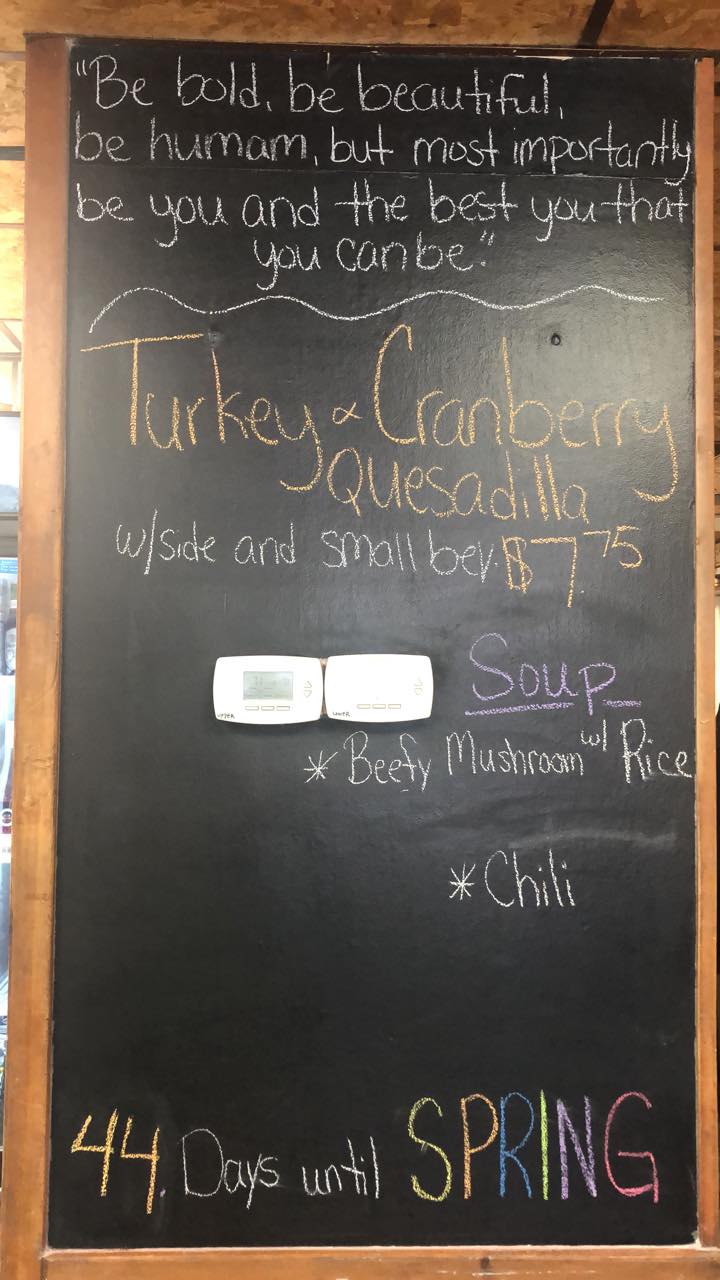 "Be bold, be beautiful,
be humam, but most importantly
be you and the best you that
you can be."
Turkey & Cranberry
Quesadilla
w/side and small bev. $7 75
Soup
UPPER LOWER
* Beefy Mushroom w/ Rice
* Chili
44 Days until SPRING